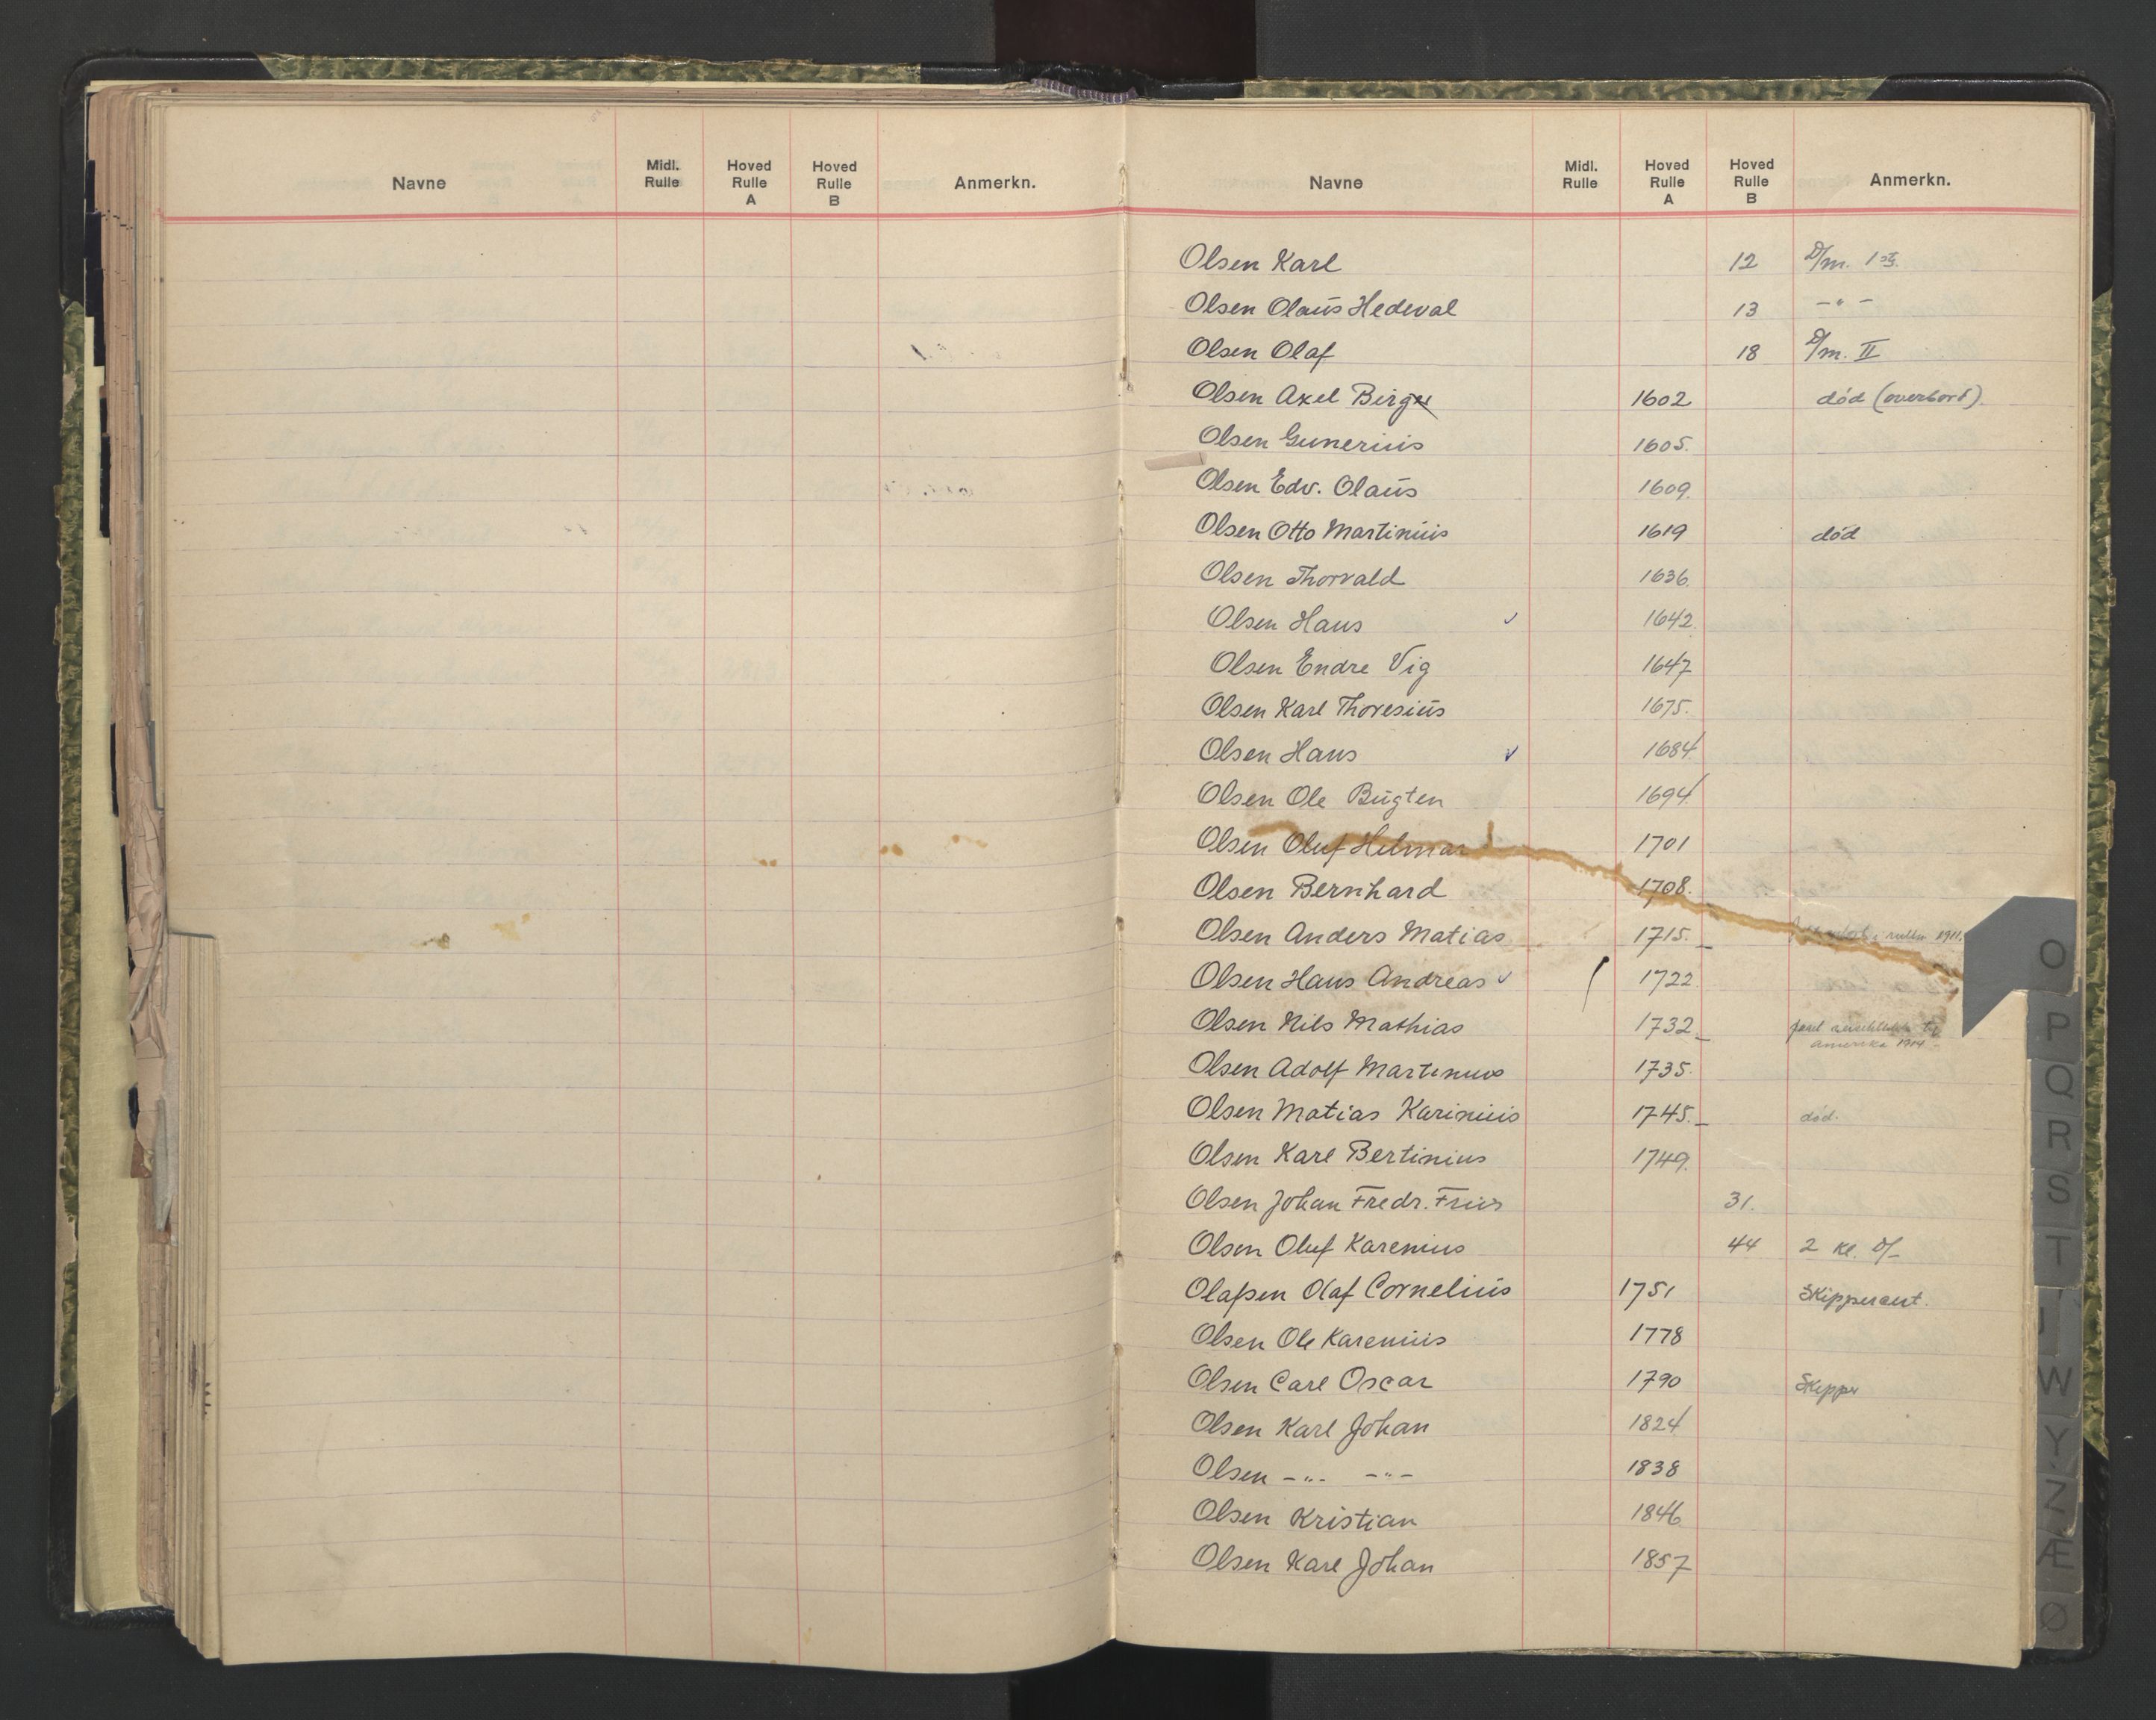 Navne Midl. Rulle Hoved Rulle A Hoved Rulle B Anmerkn.
Navne Midl. Rulle Hoved Rulle A Hoved Rulle B Anmerkn.
Olsen Karl 12 D/m. 1 st.
Olsen Olaus Hedeval 13 -"-
Olsen Olaf 18 D/m. II
Olsen Axel Birger 1602 død (overbord)
Olsen Gunerius 1605.
Olsen Edv. Olaus 1609.
Olsen Otto Martinius 1619 død
Olsen Thorvald 1636.
Olsen Hans ✓ 1642.
Olsen Endre Vig 1647
Olsen Karl Thoresius 1675.
Olsen Hans ✓ 1684
Olsen Ole Bugten 1694
Olsen Oluf Helmar 1701
Olsen Bernhard 1708.
Olsen Anders Matias 1715. rullen 1911.
Olsen Hans Andreas ✓ 1722
Olsen Nils Mathias 1732.
Amerika 1904
Olsen Adolf Martinius 1735.
Olsen Matias Karinius 1745. død.
Olsen Karl Bertinius 1749.
Olsen Johan Fredr. Friis 31.
Olsen Oluf Karenius 44 2 kl. D/-
Olaſsen Olaf Cornelius 1751 Skippercert.
Olsen Ole Karenius 1778
Olsen Carl Oscar 1790 Skipper
Olsen Karl Johan 1824
Olsen -"- -"- 1838
Olsen Kristian 1846
Olsen Karl Johan 1857
O
P
Q
R
S
T
W
Y
Z
Æ
Ø